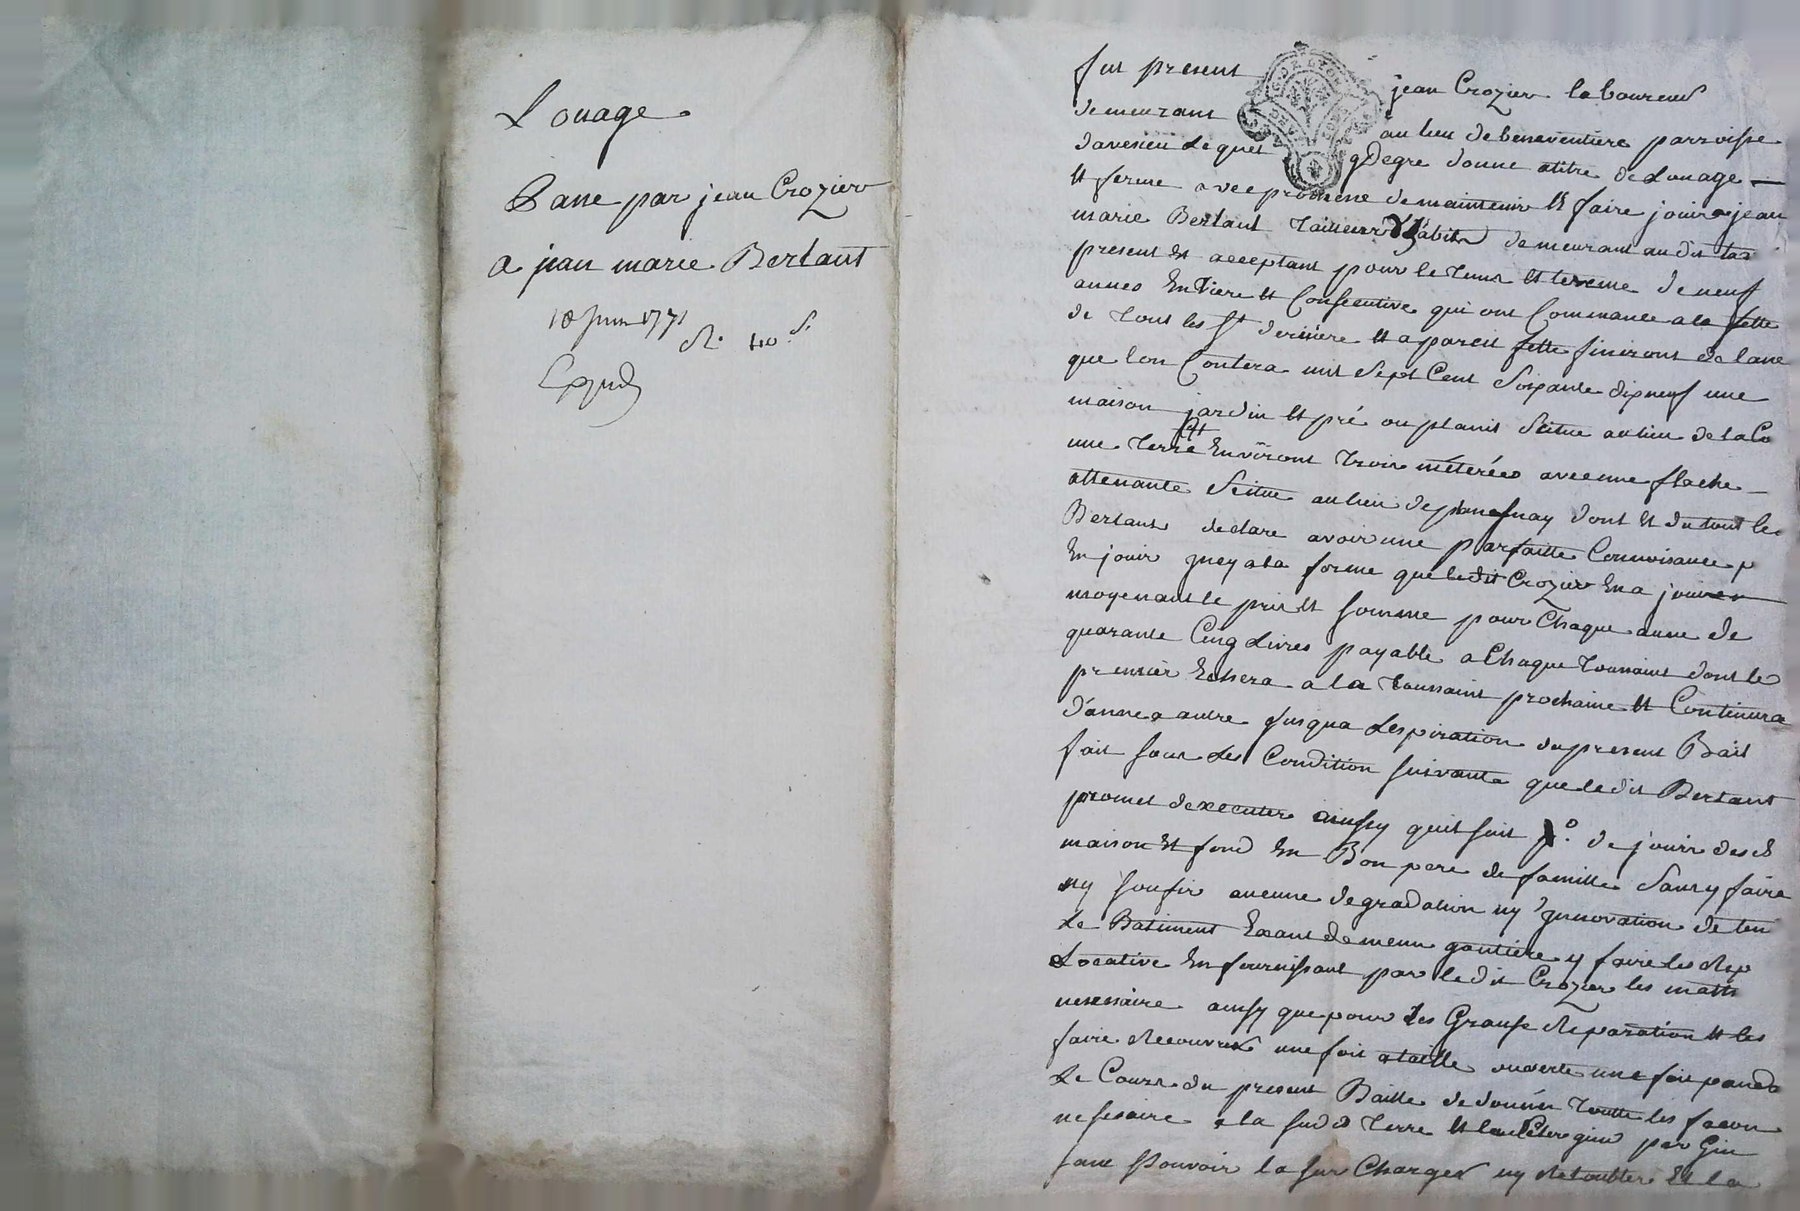 Louage
Passe par jean Crozier
a jean marie Bertaut
18 juin 1771
R. 40 s.
fut present jean Crozier laboureur
demeurant au lieu de beneventiere parroisse
daveseu Lequel de gre donne atitre de Louage
et ferme avec promesse de maintenir et faire jouir a jean
marie Bertaut Tailleur d'habit demeurant au dit
present et acceptant pour le tems et terme de neuf
annes Entiere et Consecutive qui ont Commance a la fette
de Tout les St derniere et a pareil fette finiront de lane
que lon Contera mil Sept Cent Soixante dixneuf une
maison jardin et pré ou plant Scitue au lieu de la Co
une Terre Environt Trois méterées avec une flache
attenante Scitue au lieu de dont et du tout le
Bertaut declare avoir une parfaitte Connoisance p
En jouir a la forme que ledit Crozier En a jouir
moyenant le prix et somme pour Chaque anne de
quarante Cinq Livres payable a Chaque Toussaint dont le
premier Echera a la Toussaint prochaine et Continura
d'anne a autre Jusqua Lespiration du present Bail
fait sous Les Condition suivante que ledit Bertaut
promet dexecuter ainsy quil suit p.o de jouir des d
maison et fond En Bon pere de famille Sans y faire
ny soufrir aucune degradation ny Innovation de ten
Le Batiment Exant de menu goutiere y faire les Rep
Locative En fournissant par ledit Crozier les matt
nessessaire ainsy que pour Les Grause Reparation et les
faire Recouvrir une fois a taille ouverte une fois pand
Le Cours du present Baille de donner Toutte les facon
nessesaire a la sud Terre et la par
sans Pouvoir la sur Charger ny Retoubler Et la